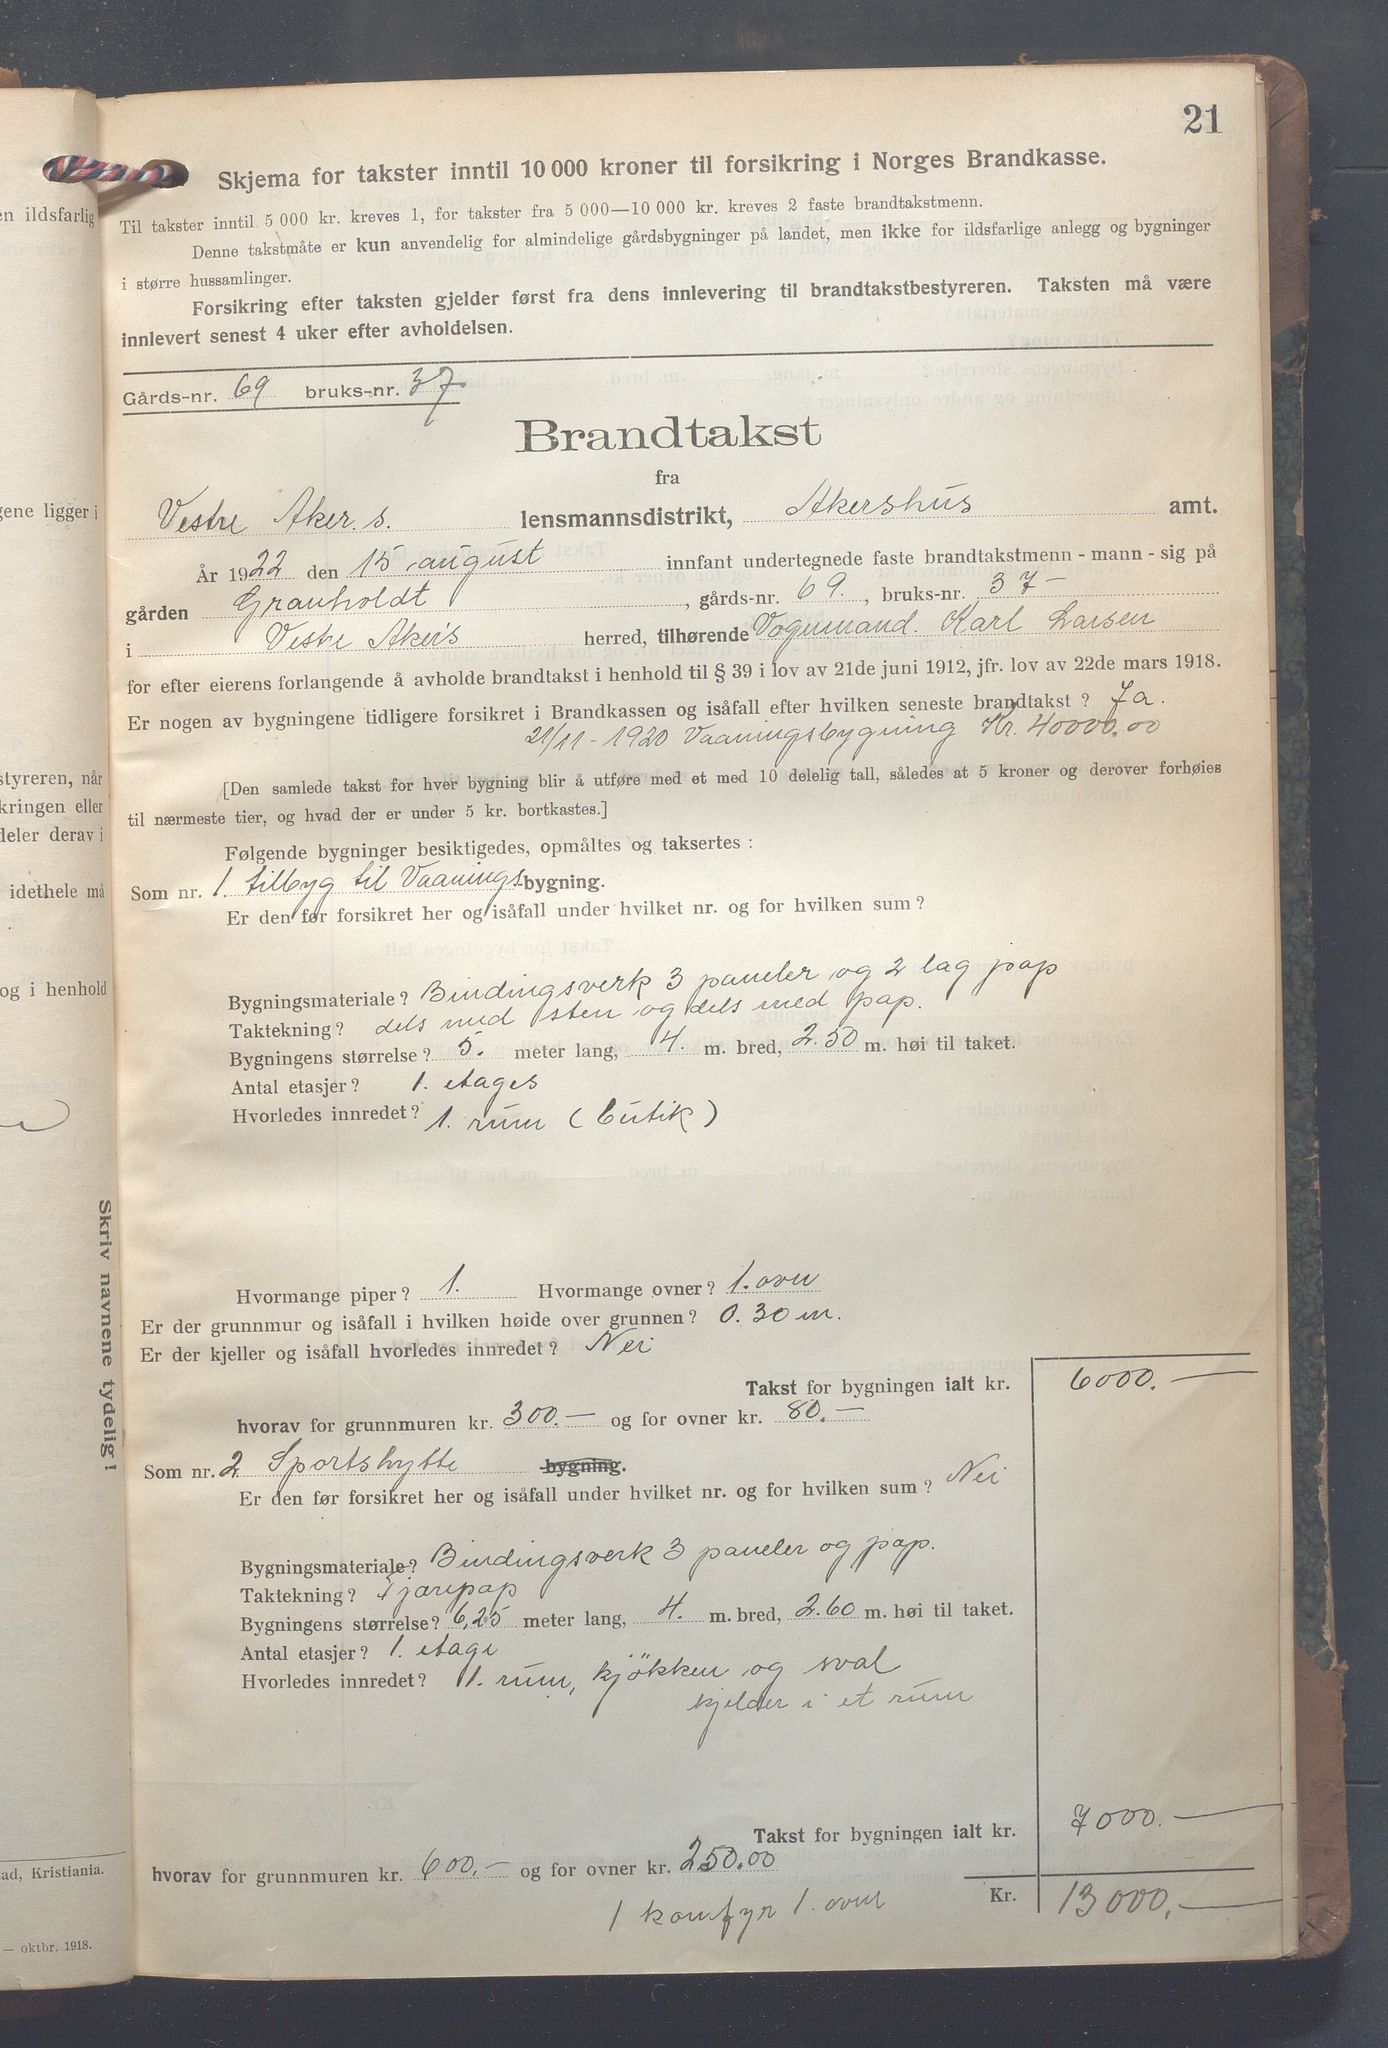 21
Skjema for takster inntil 10 000 kroner til forsikring i Norges Brandkasse.
Til takster inntil 5 000 kr. kreves 1, for takster fra 5 000—10 000 kr. kreves 2 faste brandtakstmenn.
Denne takstmåte er kun anvendelig for almindelige gårdsbygninger på landet, men ikke for ildsfarlige anlegg og bygninger
i større hussamlinger.
Forsikring efter taksten gjelder først fra dens innlevering til brandtakstbestyreren. Taksten må være
innlevert senest 4 uker efter avholdelsen.
Gårds-nr. 69 bruks-nr. 37.
Brandtakst
fra
Vestre Aker.s. lensmannsdistrikt, Akershus amt.
År 1922 den 15 august innfant undertegnede faste brandtakstmenn - mann - sig på
gården Granholdt, gårds-nr. 69., bruks-nr. 37—
i Vestre Aker's herred, tilhørende Vogumand. Karl Larsen
for efter eierens forlangende å avholde brandtakst i henhold til § 39 i lov av 21de juni 1912, jfr. lov av 22de mars 1918.
Er nogen av bygningene tidligere forsikret i Brandkassen og isåfall efter hvilken seneste brandtakst? Ja.
21/11-1920 Vaaningsbygning Kr. 40000.00
[Den samlede takst for hver bygning blir å utføre med et med 10 delelig tall, således at 5 kroner og derover forhøies
til nærmeste tier, og hvad der er under 5 kr. bortkastes.]
Følgende bygninger besiktigedes, opmåltes og taksertes:
Som nr. 1. tilbyg til Vaanings-bygning.
Er den før forsikret her og isåfall under hvilket nr. og for hvilken sum?
Bygningsmateriale? Bindingsverk 3 paneler og 2 lag pap
Taktekning? dels med sten og dels med pap.
Bygningens størrelse? 5. meter lang, 4. m. bred, 2.50 m. høi til taket.
Antal etasjer? 1. etages
Hvorledes innredet? 1. rum (butik)
Hvormange piper? 1. Hvormange ovner? 1. ovn
Er der grunnmur og isåfall i hvilken høide over grunnen? 0.30 m.
Er der kjeller og isåfall hvorledes innredet? Nei
Takst for bygningen ialt kr. 6000.—
hvorav for grunnmuren kr. 300.— og for ovner kr. 80.—
Som nr. 2 Sportshytte bygning.
Er den før forsikret her og isåfall under hvilket nr. og for hvilken sum? Nei
Bygningsmateriale? Bindingsverk 3 paneler og pap.
Taktekning? Tjærepap
Bygningens størrelse? 6,25 meter lang, 4. m. bred, 2.60 m. høi til taket.
Antal etasjer? 1. etage
Hvorledes innredet? 1. rum, kjøkken og sval
kjelder i et rum
Takst for bygningen ialt kr. 7000.—
hvorav for grunnmuren kr. 600.— og for ovner kr. 250.00
Kr. 13000.—
1 komfyr 1. ovn
Skriv navnene tydelig!
en ildsfarlig
gene ligger i
styreren, når
kringen eller
deler derav i
idethele må
og i henhold
ad, Kristiania.
— oktbr. 1918.